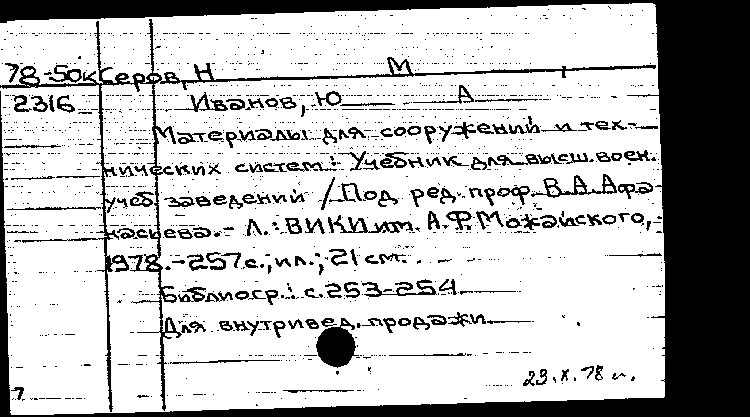 78-50к Серов, Н М
2316 Иванов, Ю А
Материалы для сооружений и тех-
нических систем: Учебник для высш. воен.
учеб. заведений / Под ред. проф. В.А. Афа-
насьева. - Л.: ВИКИ им. А.Ф. Можайского,
1978. - 257 с.; ил.; 21 см.
Библиогр.: с. 253-254
Для внутривед. продажи.
23.X.78
7